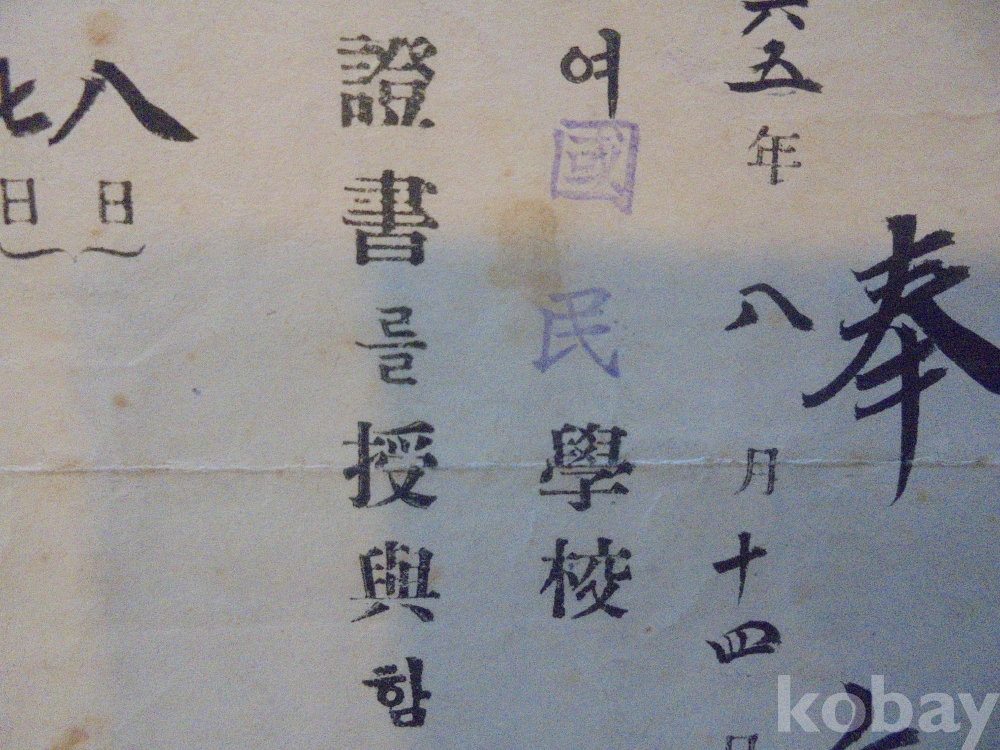 奉
六五年八月十四日
여國民學校
證書를授與함
八日
七日
kobay